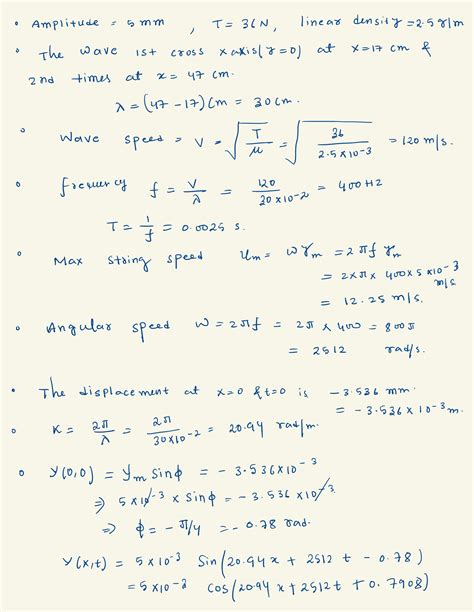 • Amplitude = 5 mm , T = 36 N, linear density = 2.5 g/m
• The wave 1st cross x axis (y=0) at x=17 cm &
2nd times at x= 47 cm.
λ = (47 - 17) cm = 30 cm.
• Wave speed = V = √(T/μ) = √(36/2.5×10-3) = 120 m/s.
• Frequency f = V/λ = 120/30×10-2 = 400 Hz
T = 1/f = 0.0025 s.
• Max string speed um = w ym = 2πf ym
= 2×π× 400×5×10-3 m/s
= 12.25 m/s.
• Angular speed w = 2πf = 2π × 400 = 800π
= 2512 rad/s.
• The displacement at x=0 & t=0 is -3.536 mm.
= -3.536×10-3 m.
• K = 2π/λ = 2π/30×10-2 = 20.94 rad/m.
• y(0,0) = ym sinϕ = -3.536×10-3
⇒ 5×10-3 × sinϕ = -3.536×10-3
⇒ ϕ = -π/4 = -0.78 rad.
y(x,t) = 5×10-3 sin(20.94x + 2512t - 0.78)
= 5×10-3 cos(20.94x + 2512t + 0.7908)